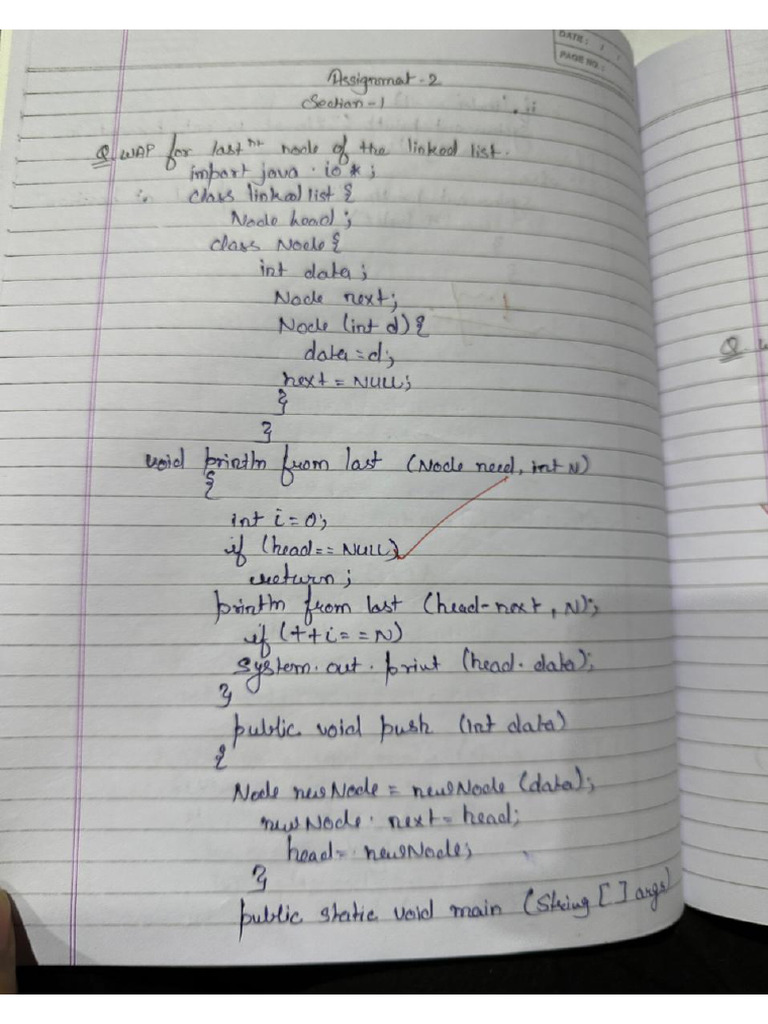 DATE: / /
PAGE NO.:
Assignmat-2
Section-1
Q WAP for last nt node of the linked list.
import java.io*;
class linked list {
Node head;
class Node {
int data;
Node next;
Node (int d) {
data=d;
next = NULL;
}
}
void println from last (Node need, int N)
{
int i=0;
if (head== NULL)
return;
println from last (head-next, N);
if (++i==N)
System.out.print (head.data);
}
public void push (int data)
{
Node newNode = newNode (data);
newNode.next=head;
head= newNode;
}
public static void main (String [] args)
Q